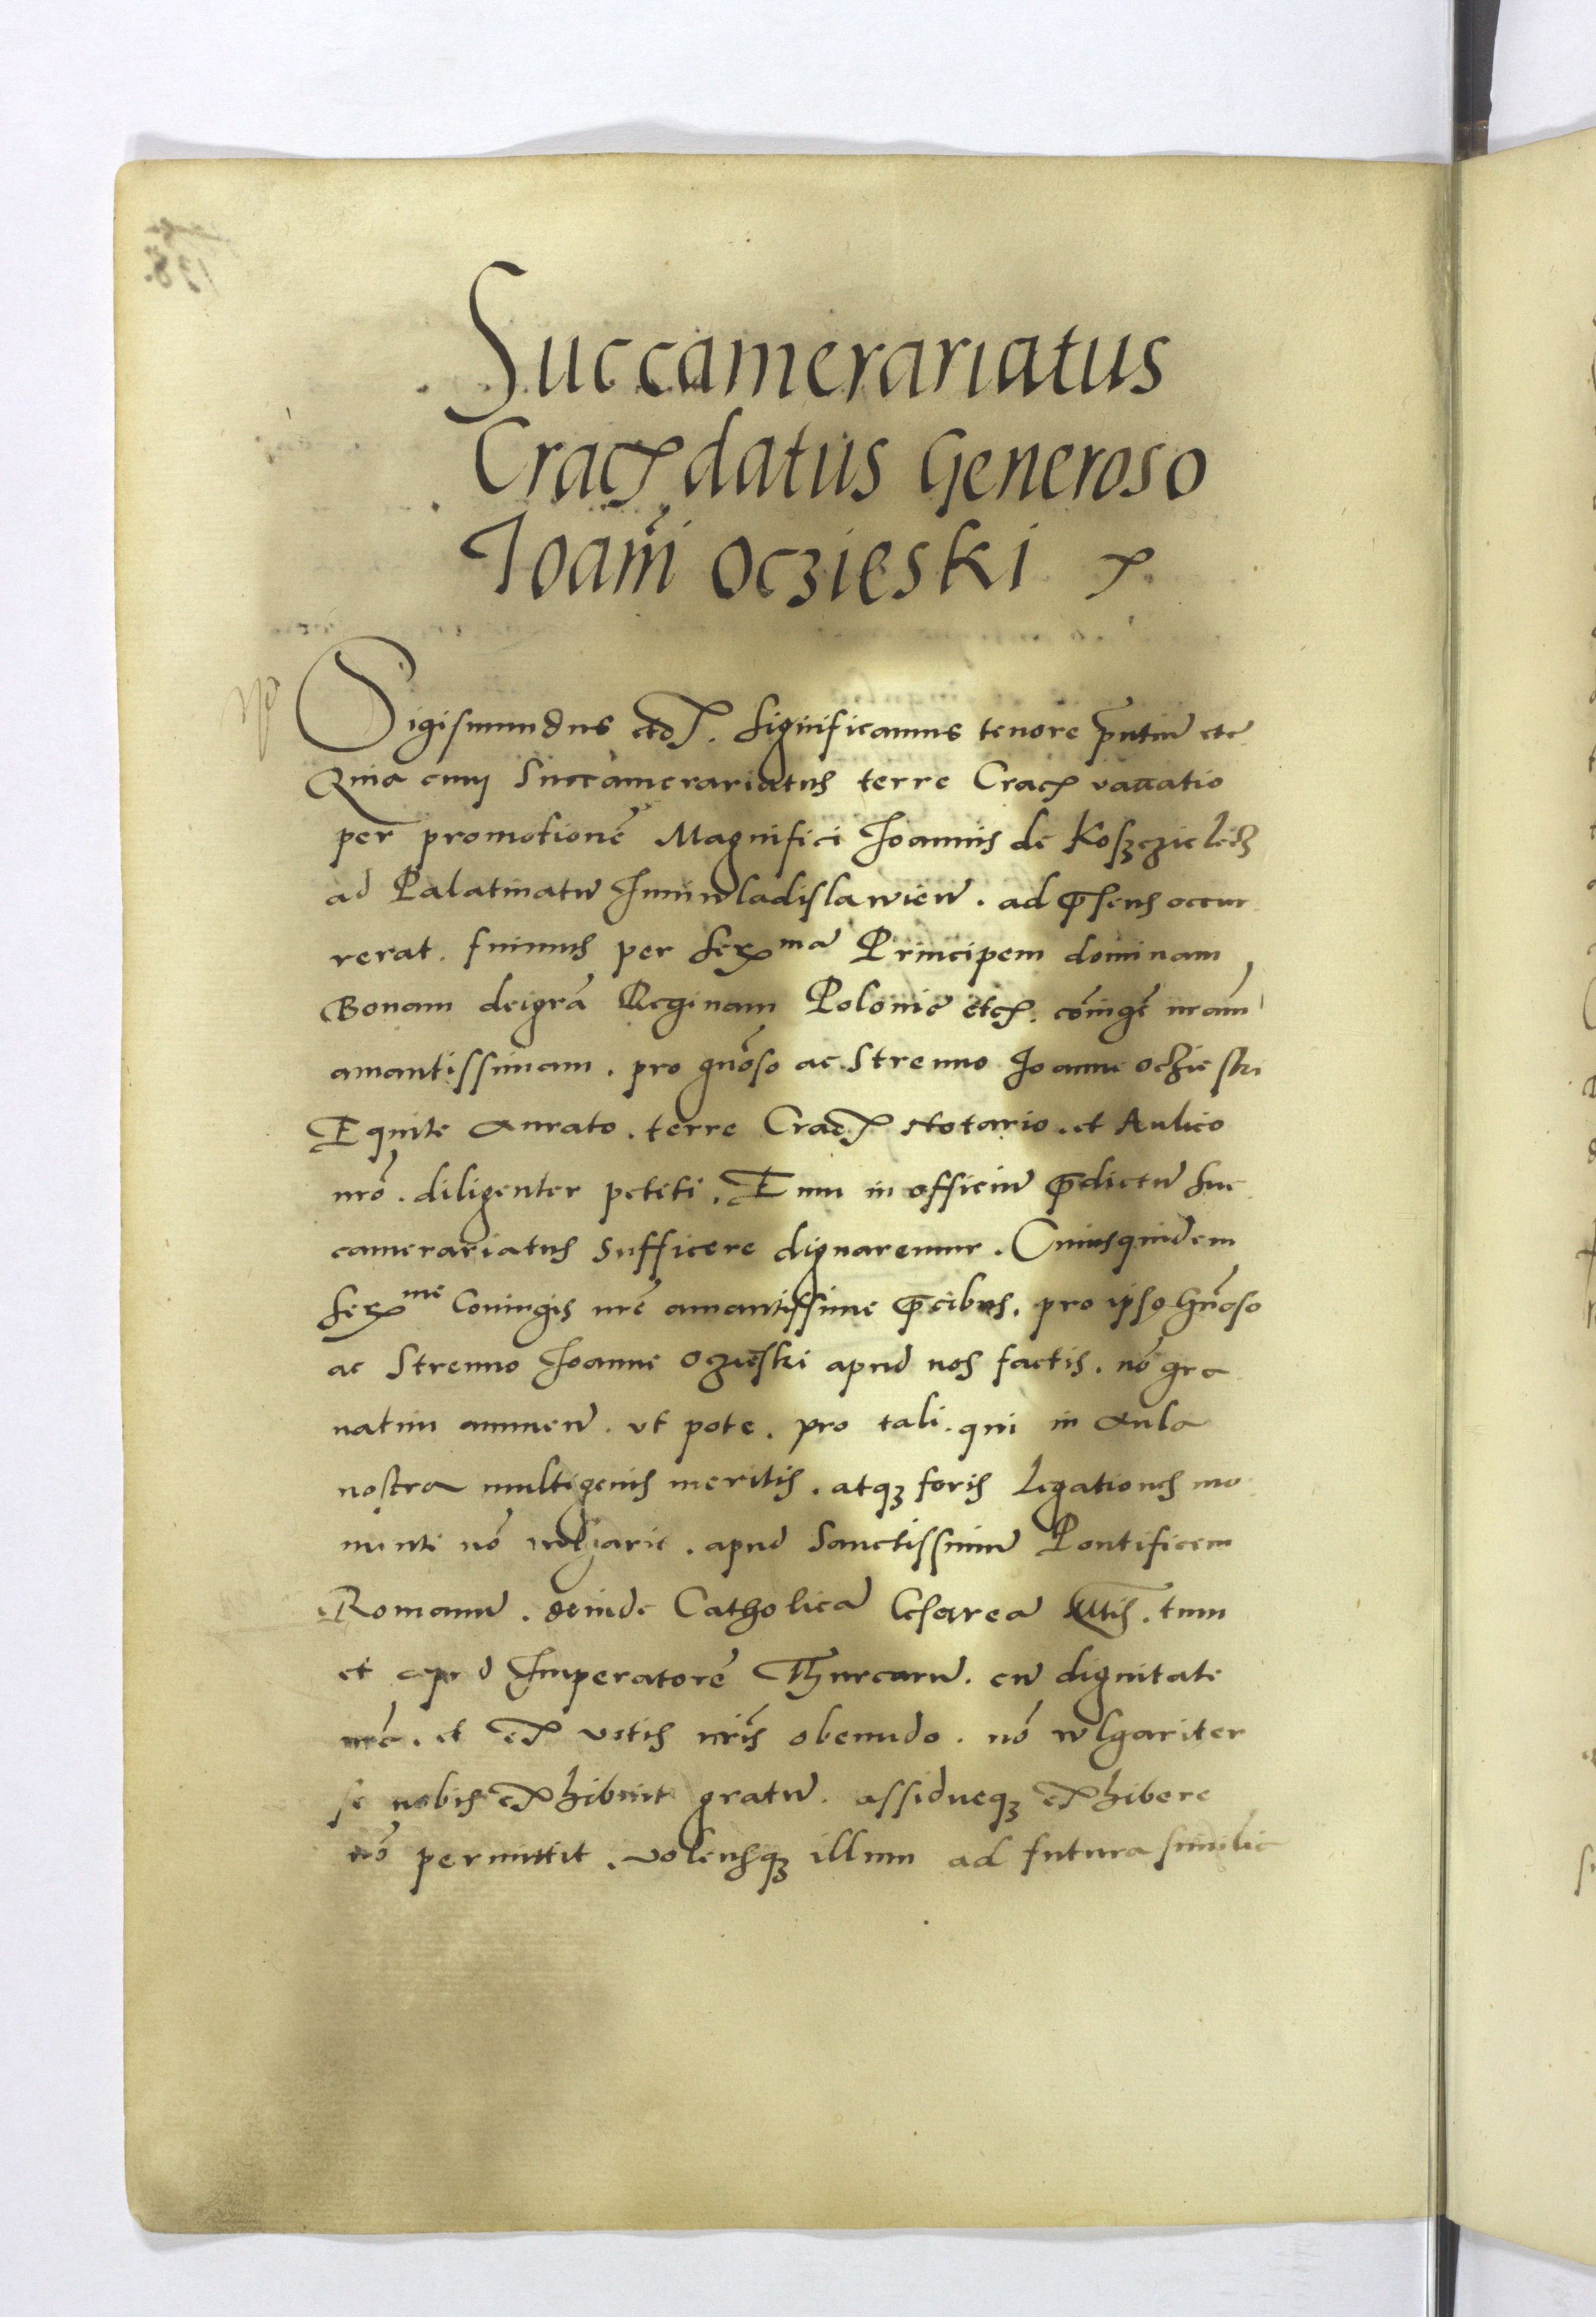 Succamerariatus
Crac̄ datus Generoso
Joan̄i Oczieski
Sigismundus etc̄. Significamus tenore p̄ntiū etc
Quia cum Succamerariatus terre Crac̄ vacatio
per promotionē Magnifici Joannis de Koszczielecz
ad Palatinatū Juniwladislawieñ. ad p̄sens occur
rerat. fuimus per Serᵐᵃ Principem dominam
Bonam dei gr̄a Reginam Polonie etc̄. cōiugē nr̄am
amantissimam. pro gn̄oso ac Strenuo Joanne Oczieski
Equite Aurato. terre Crac̄ Notario. et Aulico
nr̄o. diligenter petiti. Eum in officiū p̄dictū suc
camerariatus sufficere dignaremur. Cuiusquidem
Serᵐᵉ Coniugis nr̄e amantissime p̄cibus. pro ipso Gn̄oso
ac Strenuo Joanne Oczieski apud nos factis. nō gra
vatim annuen̄. ut pote. pro tali. qui in Aula
nostra multigenis meritis. atqz foris legationes mo
menti nō wlgaris. apud Sanctissimū Pontificem
Romanū. deinde Catholicā Cesareā Mtis. tum
et apud Imperatorē Thurcarū. cū dignitate
nr̄a. et ex votis nr̄is obeundo. nō wlgariter
se nobis exhibuit gratū. assidueqz exhibere
nō permittit. volensqz illum ad futura similia